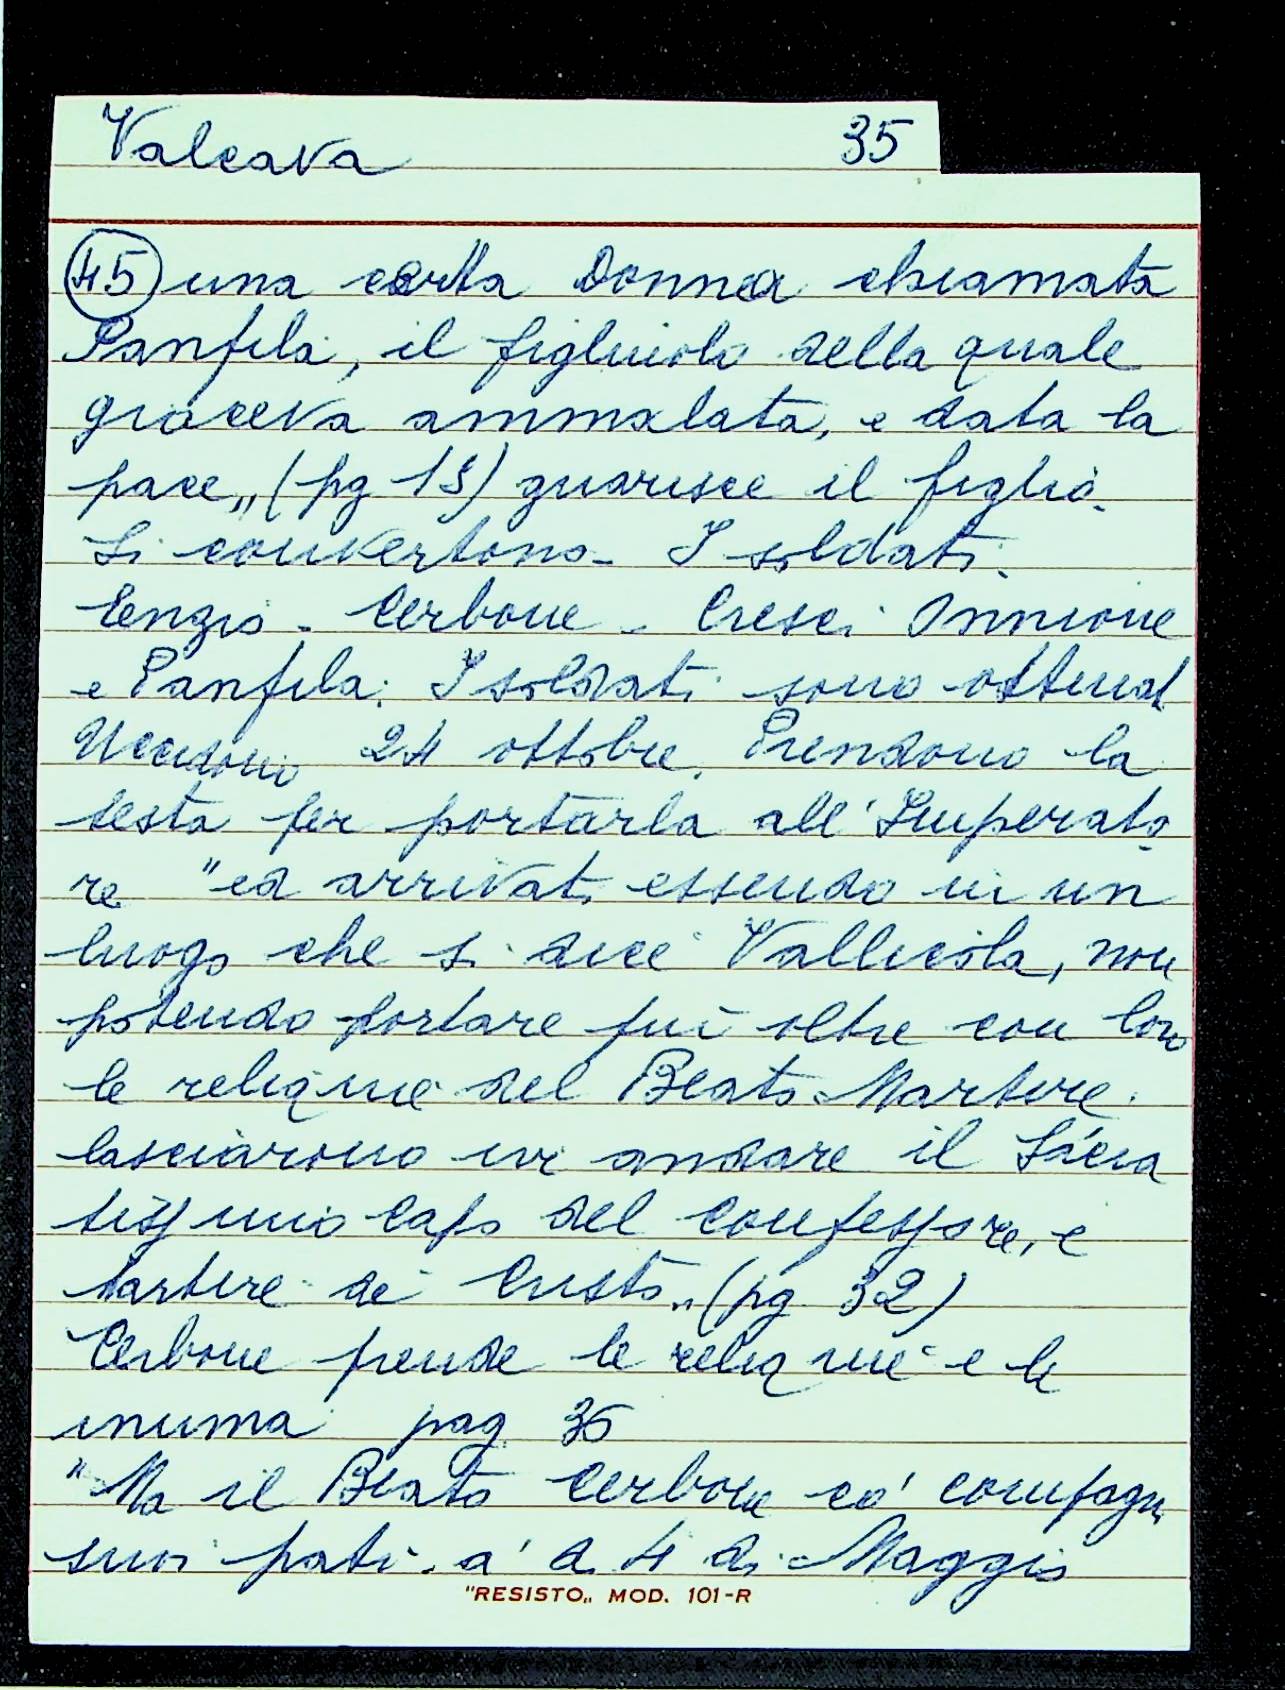 Valcava 35
45 una certa Donna chiamata
Panfila, il figliuolo della quale
giaceva ammalata, e data la
pace,, (pg 18) guarisce il figlio.
Si convertono - I soldati.
Enzio - Cerbone - Cresci Onnione
e Panfila. I soldati sono
Uccidono 24 ottobre. Prendono la
testa per portarla all'Imperato
re "ed arrivati essendo in un
luogo che si dice Vallicola, non
potendo portare più oltre con loro
le reliquie del Beato Martire.
lasciarono ivi andare il Sacra
tissimo Capo del Confessore, e
Martire di Cristo,, (pg 32)
Cerbone prende le reliquie e le
inuma pag 36
"Ma il Beato Cerbone co' compagni
suoi patì a' dì 4 di Maggio
"RESISTO,, MOD. 101-R